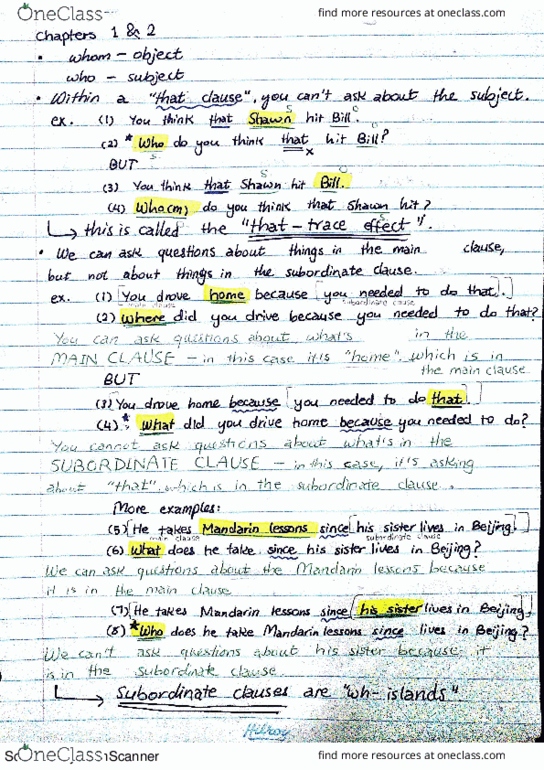 OneClass
find more resources at oneclass.com
Chapters 1 & 2
• whom – object
who – subject
• Within a "that clause", you can't ask about the subject.
ex. (1) You think that Shawn hit Bill.
S O
(2) * Who do you think that hit Bill?
S x O
BUT
S O
(3) You think that Shawn hit Bill.
(4) Who(m) do you think that Shawn hit?
↳ this is called the "that-trace effect".
• We can ask questions about things in the main clause,
but not about things in the subordinate clause.
ex. (1) [You drove home because [you needed to do that.]]
main clause subordinate clause
(2) Where did you drive because you needed to do that?
You can ask questions about what's in the
MAIN CLAUSE – in this case it is "home", which is in
the main clause
BUT
(3) You drove home because [you needed to do that.]
(4) * What did you drove home because you needed to do?
You cannot ask questions about what's in the
SUBORDINATE CLAUSE – in this case, it's asking
about "that", which is in the subordinate clause.
More examples:
(5) [He takes Mandarin lessons since [his sister lives in Beijing.]]
main clause subordinate clause
(6) What does he take since his sister lives in Beijing?
We can ask questions about the Mandarin lessons because
it is in the main clause
(7) [He takes Mandarin lessons since [his sister lives in Beijing.
(8) * Who does he take Mandarin lessons since lives in Beijing?
We can't ask questions about his sister because it
is in the subordinate clause.
↳ Subordinate clauses are "wh-islands"
Hilroy
OneClass
Scanner
find more resources at oneclass.com